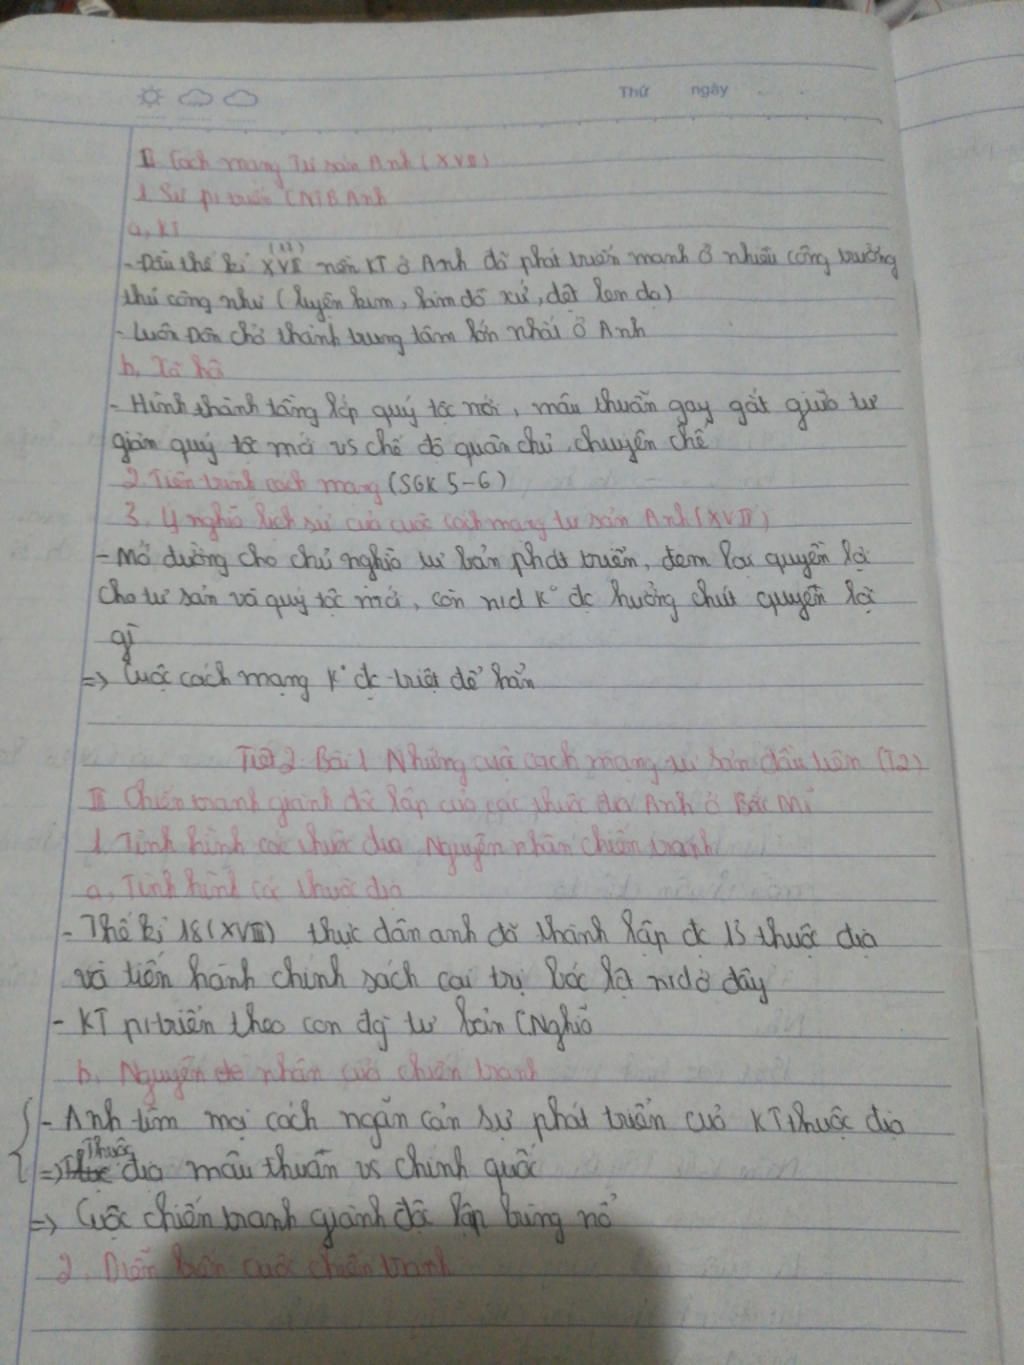 Thứ ngày
II. Cách mạng Tư sản Anh (XVII)
1. Sự pt triển CNTB Anh
a, KT
- Đầu thế kỉ XVII nền KT ở Anh đã phát triển mạnh ở nhiều công trường
thủ công như (luyện kim, làm đồ xứ, dệt len dạ)
- Luôn Đôn chở thành trung tâm lớn nhất ở Anh
b. Xã hội
- Hình thành tầng lớp quý tộc mới, mâu thuẫn gay gắt giữa tư
sản quý tộc mới vs chế độ quân chủ chuyên chế
2. Tiến trình cách mạng (SGK 5-6)
3. Ý nghĩa lịch sử của cuộc cách mạng tư sản Anh (XVII)
- Mở đường cho chủ nghĩa tư bản phát triển, đem lại quyền lợi
cho tư sản và quý tộc mới, còn nd K° đc hưởng chút quyền lợi
gì
=> Cuộc cách mạng K° đc triệt để hẳn
Tiết 2 Bài 1 Những cuộc cách mạng tư sản đầu tiên (T2)
III Chiến tranh giành độc lập của các thuộc địa Anh ở Bắc Mĩ
1. Tình hình các thuộc địa Nguyên nhân chiến tranh
a, Tình hình các thuộc địa
- Thế kỉ 18 (XVIII) thực dân anh đã thành lập đc 13 thuộc địa
và tiến hành chính sách cai trị bóc lột nd ở đây
- KT pt triển theo con đg tư bản CNghĩa
b. Nguyên nhân của chiến tranh
- Anh tìm mọi cách ngăn cản sự phát triển của KT thuộc địa
=> Thuộc địa mâu thuẫn vs chính quốc
=> Cuộc chiến tranh giành độc lập bùng nổ
2. Diễn biến cuộc chiến tranh